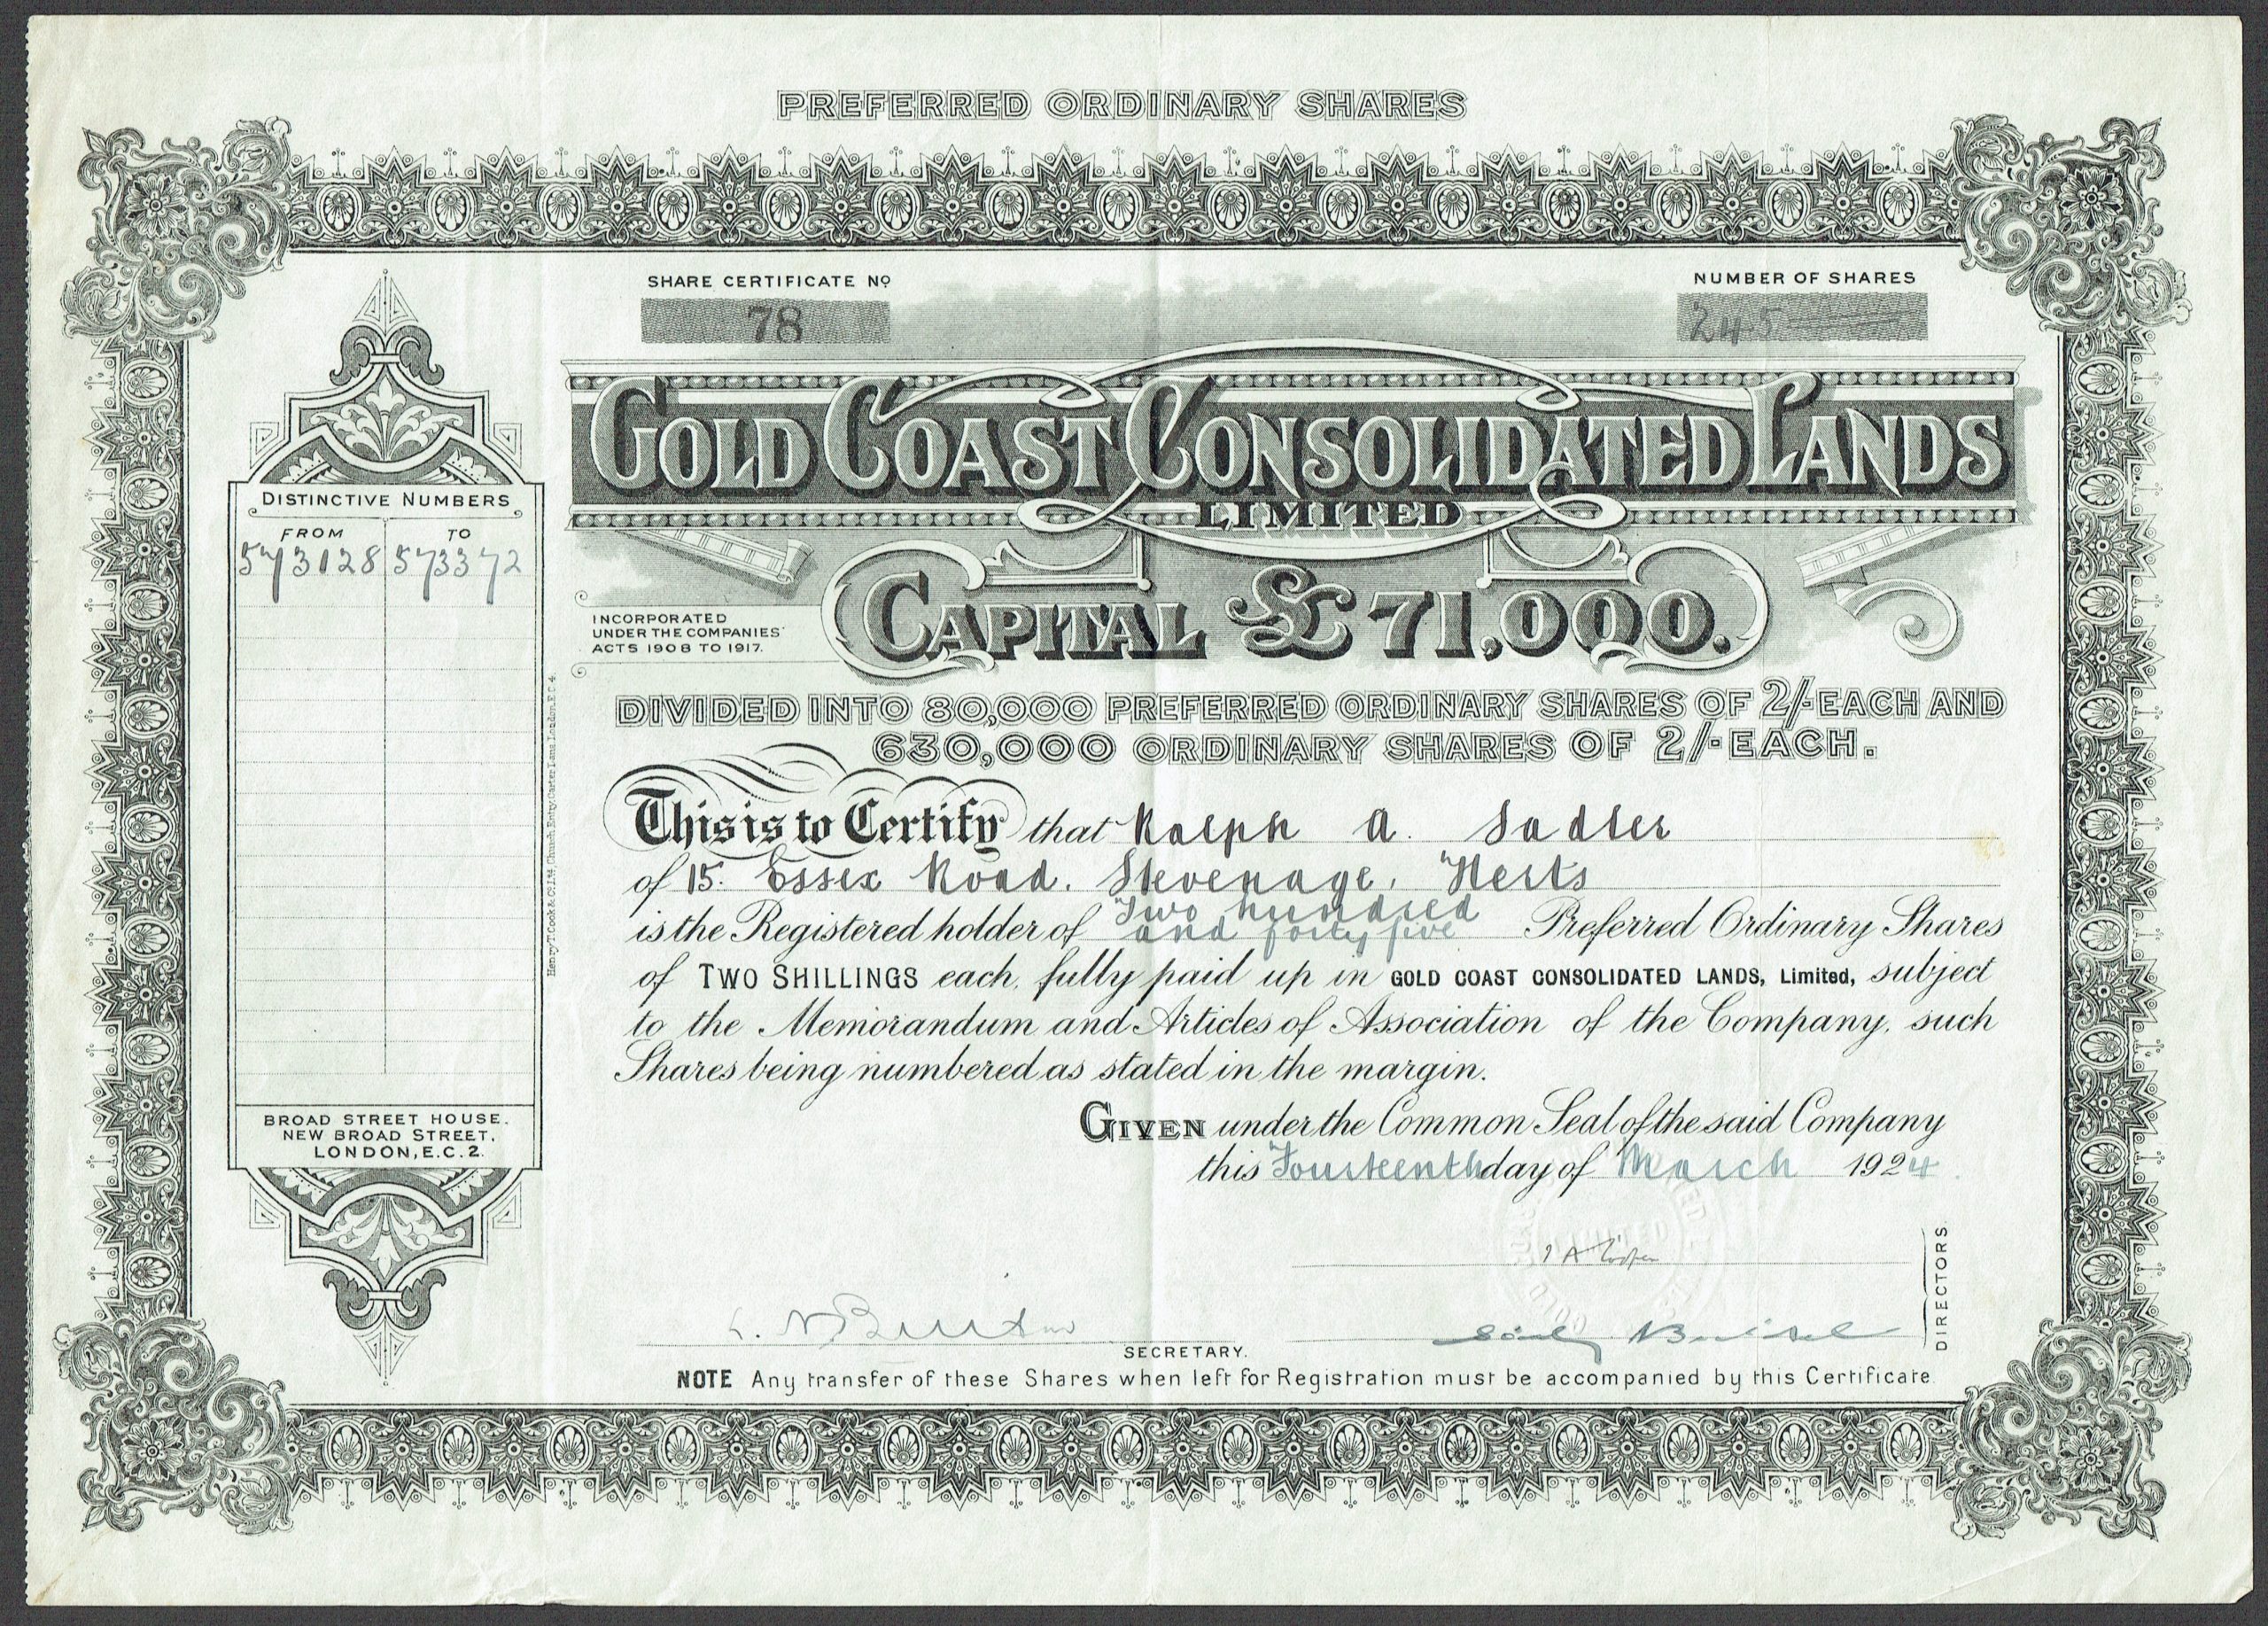 PREFERRED ORDINARY SHARES
SHARE CERTIFICATE No
78
NUMBER OF SHARES
245
GOLD COAST CONSOLIDATED LANDS
LIMITED
CAPITAL £71,000.
INCORPORATED
UNDER THE COMPANIES'
ACTS 1908 TO 1917.
DIVIDED INTO 80,000 PREFERRED ORDINARY SHARES OF 2/- EACH AND
630,000 ORDINARY SHARES OF 2/- EACH.
DISTINCTIVE NUMBERS
FROM TO
573128 573372
This is to Certify that Ralph A. Sadler
of 15. Essex Road. Stevenage, Herts
is the Registered holder of Two hundred and forty five Preferred Ordinary Shares
of TWO SHILLINGS each, fully paid up in GOLD COAST CONSOLIDATED LANDS, Limited, subject
to the Memorandum and Articles of Association of the Company, such
Shares being numbered as stated in the margin.
GIVEN under the Common Seal of the said Company
this Fourteenth day of March 1924
BROAD STREET HOUSE.
NEW BROAD STREET,
LONDON, E.C.2.
Henry T. Cook & Co. Ltd, Church Entry, Carter Lane, London. E.C.4.
LIMITED
GOLD
DIRECTORS
SECRETARY.
NOTE Any transfer of these Shares when left for Registration must be accompanied by this Certificate.